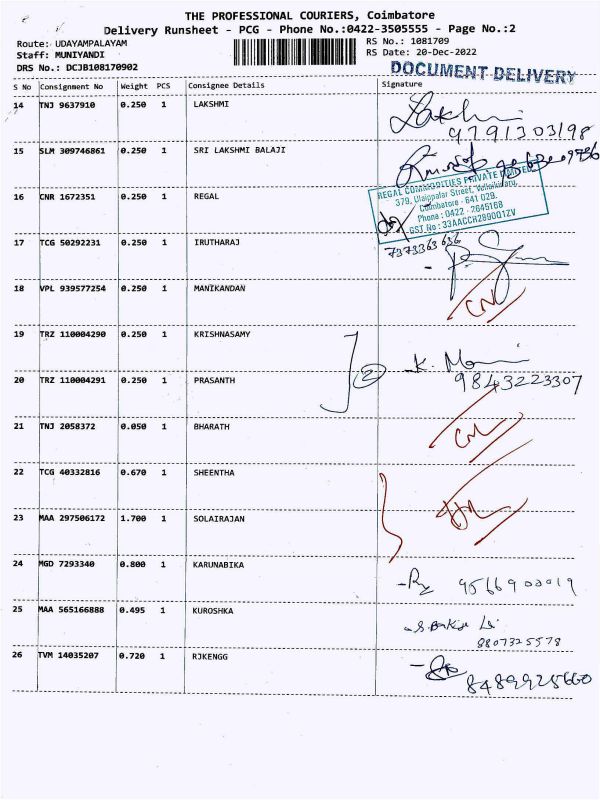 THE PROFESSIONAL COURIERS, Coimbatore
Delivery Runsheet - PCG - Phone No.:0422-3505555 - Page No.:2
Route: UDAYAMPALAYAM RS No.: 1081709
Staff: MUNIYANDI RS Date: 20-Dec-2022
DRS No.: DCJB108170902 DOCUMENT DELIVERY
S No Consignment No Weight PCS Consignee Details Signature
14 TNJ 9637910 0.250 1 LAKSHMI Lakshmi
9791303198
15 SLM 309746861 0.250 1 SRI LAKSHMI BALAJI
16 CNR 1672351 0.250 1 REGAL
REGAL COMMODITIES PRIVATE LIMITED
379, Ulaippalar Street, Vellalkinaru,
Coimbatore - 641 029.
Phone : 0422 - 2645168
GST No : 33AACCR2890Q1ZV
17 TCG 50292231 0.250 1 IRUTHARAJ 7373363636
18 VPL 939577254 0.250 1 MANIKANDAN
19 TRZ 110004290 0.250 1 KRISHNASAMY
2 K. Mani
20 TRZ 110004291 0.250 1 PRASANTH 9843223307
21 TNJ 2058372 0.050 1 BHARATH
22 TCG 40332816 0.670 1 SHEENTHA
23 MAA 297506172 1.700 1 SOLAIRAJAN
24 MGD 7293340 0.800 1 KARUNABIKA
25 MAA 565166888 0.495 1 KUROSHKA
8807325578
26 TVM 14035207 0.720 1 RJKENGG
8489925660